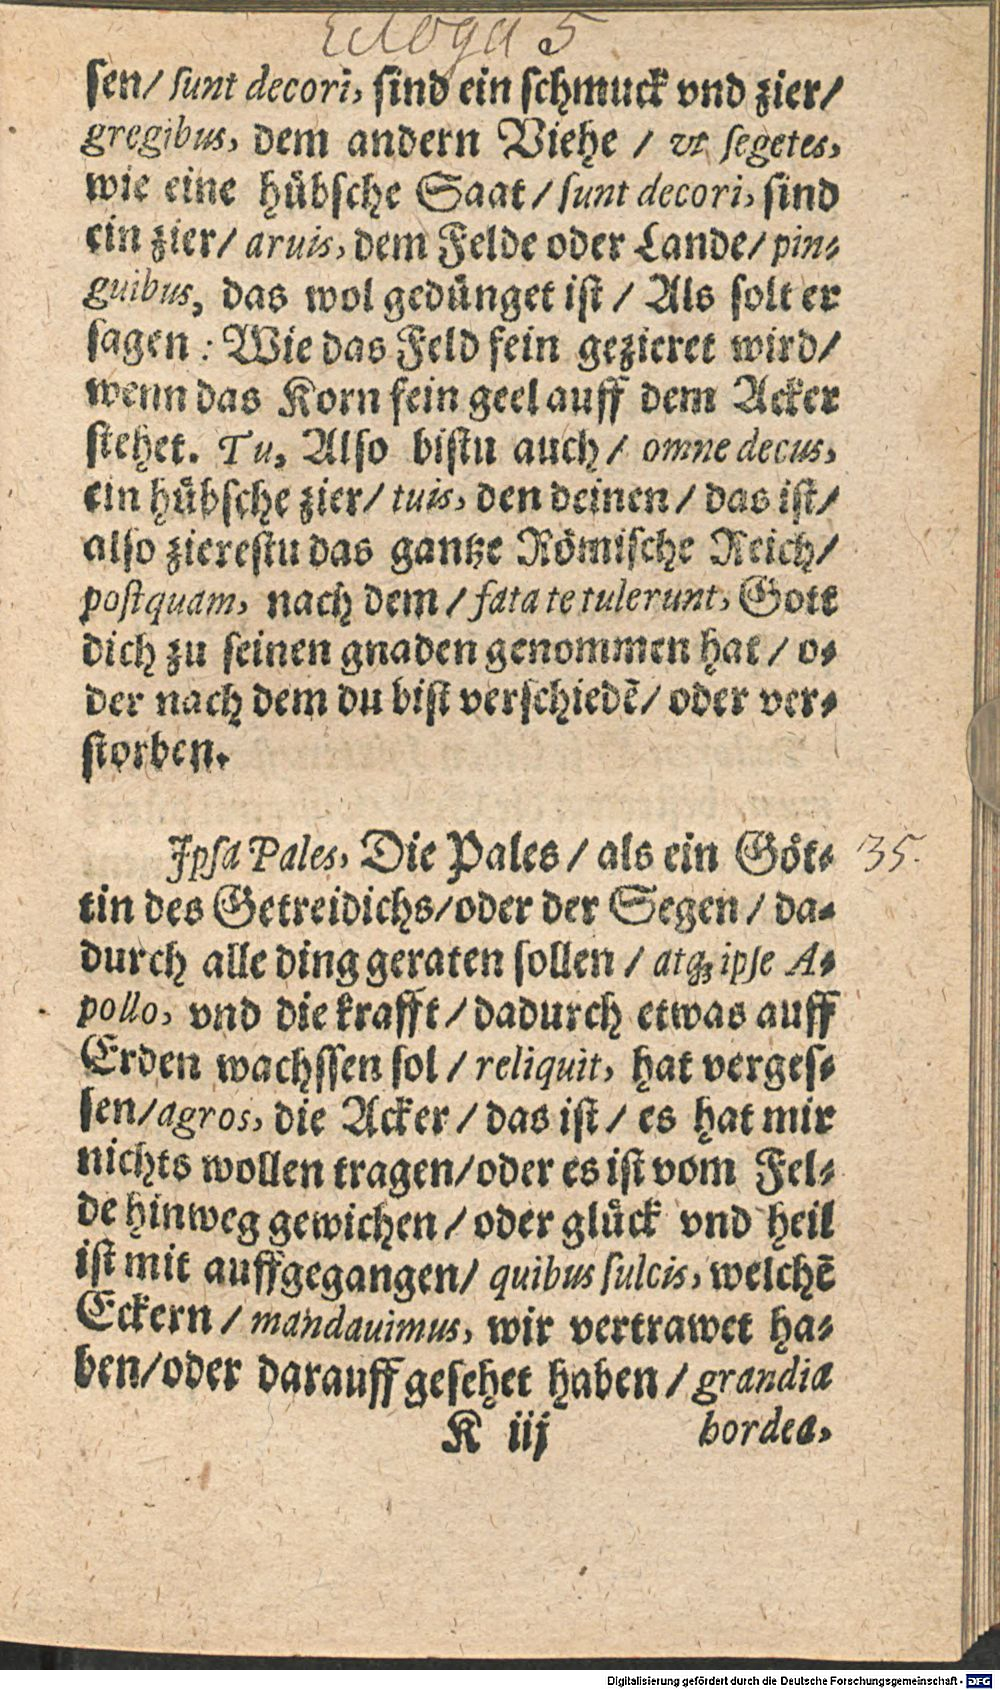 Ecloga 5
sen/ sunt decori, sind ein schmuck vnd zier/
gregibus, dem andern Viehe / vt segetes,
wie eine hübsche Saat / sunt decori, sind
ein zier/ aruis, dem Felde oder Lande/ pin-
guibus, das wol gedünget ist / Als solt er
sagen : Wie das Feld fein gezieret wird/
wenn das Korn fein geel auff dem Acker
stehet. Tu, Also bistu auch / omne decus,
ein hübsche zier/ tuis, den deinen / das ist/
also zierestu das gantze Römische Reich/
postquam, nach dem / fata te tulerunt, Gott
dich zu seinen gnaden genommen hat / o-
der nach dem du bist verschiedē/ oder ver-
storben.
Jpsa Pales, Die Pales / als ein Göt- 35.
tin des Getreidichs/oder der Segen / da-
durch alle ding geraten sollen / atq; ipse A-
pollo, vnd die krafft / dadurch etwas auff
Erden wachssen sol / reliquit, hat verges-
sen/agros, die Acker / das ist / es hat mir
nichts wollen tragen/oder es ist vom Fel-
de hinweg gewichen / oder glück vnd heil
ist mit auffgegangen/ quibus sulcis, welchē
Eckern / mandauimus, wir vertrawet ha-
ben/oder darauff gesehet haben / grandia
K iij hordea,
Digitalisierung gefördert durch die Deutsche Forschungsgemeinschaft - DFG